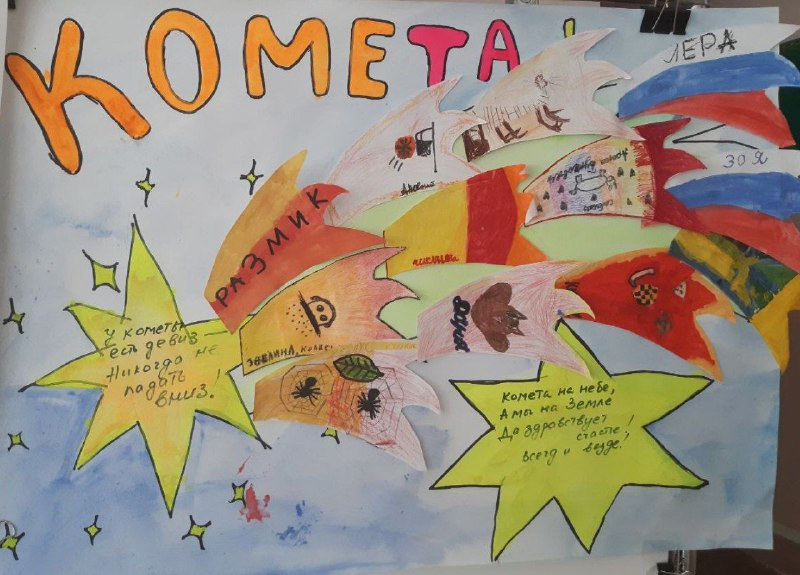 КОМЕТА!
ЛЕРА
ЗОЯ
РАЗМИК
ЭВЕЛИНА,
У кометы
есть девиз —
Никогда не
падать
вниз!
Комета на небе,
А мы на Земле
Да здравствует
счастье!
Всегд и везде!